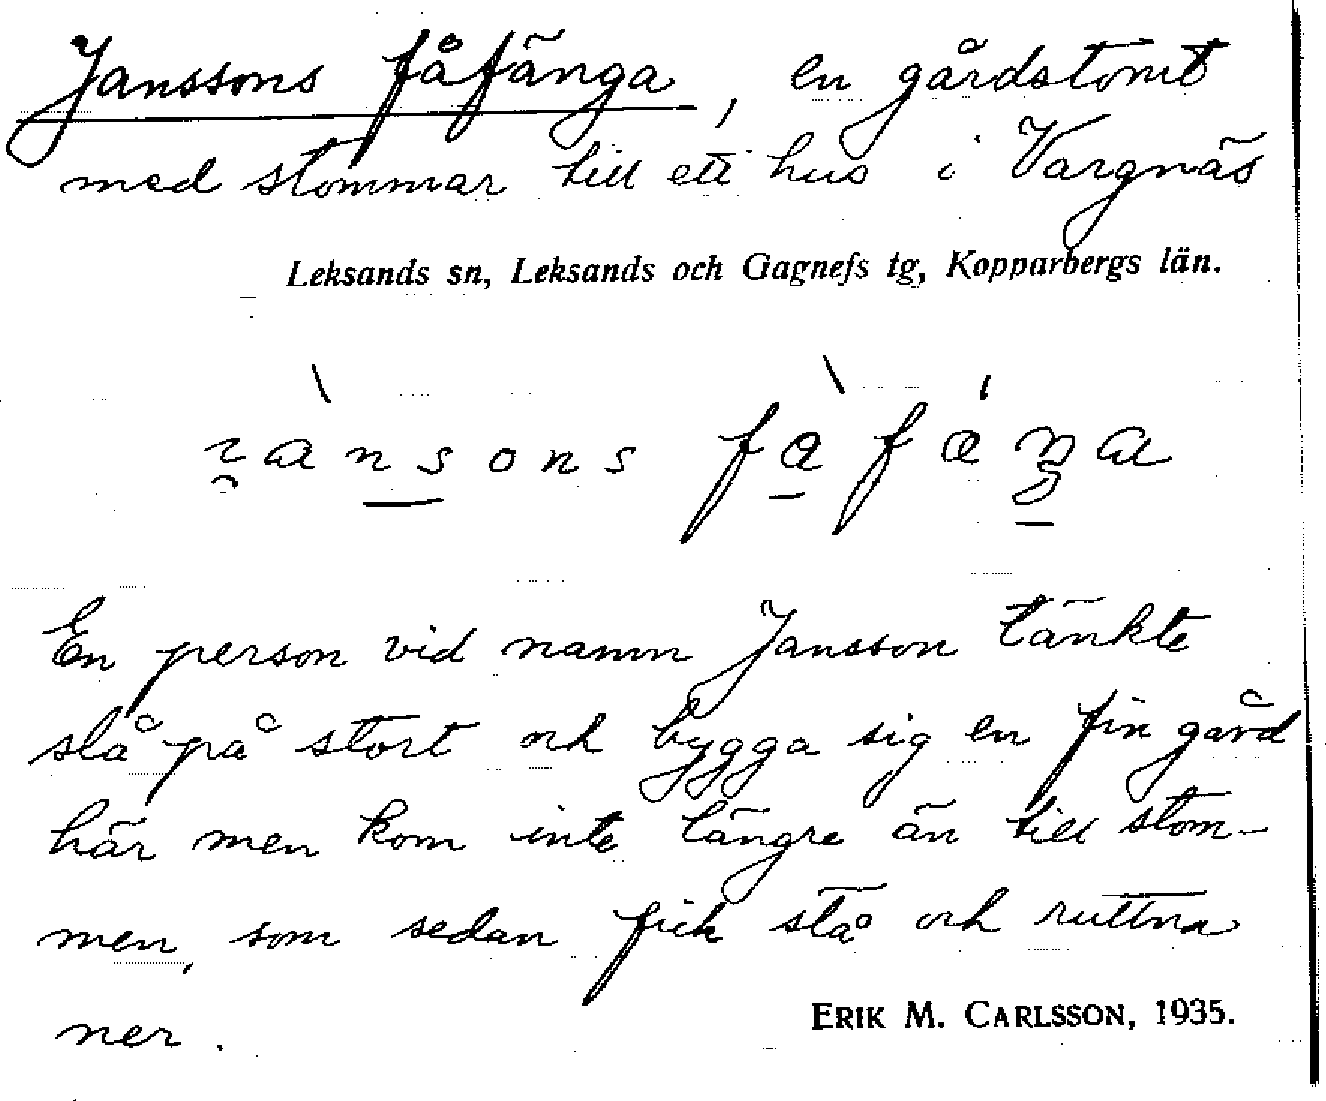 Janssons fåfänga, en gårdstomt
med stommar till ett hus i Vargnäs
Leksands sn, Leksands och Gagnefs tg, Kopparbergs län.
En person vid namn Jansson tänkte
slå på stort och bygga sig en fin gård
här men kom inte längre än till stom-
men, som sedan fick stå och ruttna
ner.
ERIK M. CARLSSON, 1935.